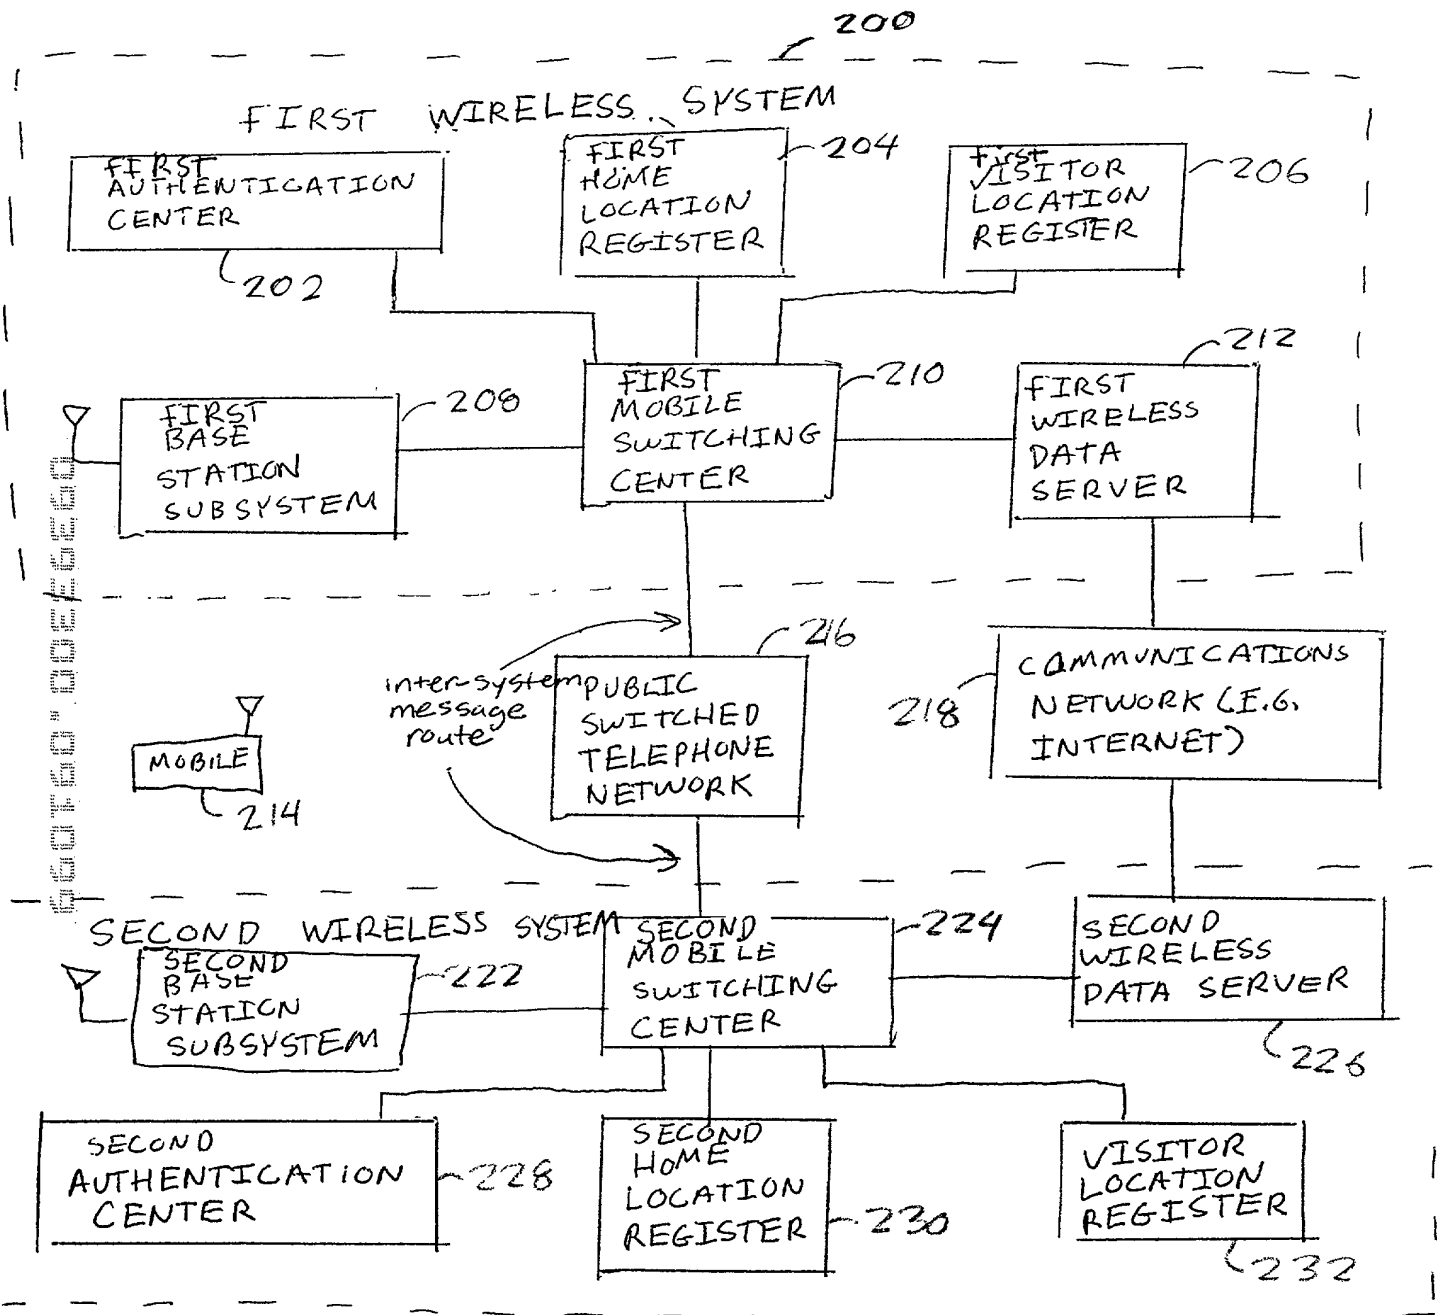 200
FIRST WIRELESS SYSTEM
FIRST
AUTHENTICATION
CENTER
202
FIRST
HOME
LOCATION
REGISTER
204
first
VISITOR
LOCATION
REGISTER
206
FIRST
BASE
STATION
SUBSYSTEM
208
FIRST
MOBILE
SWITCHING
CENTER
210
FIRST
WIRELESS
DATA
SERVER
212
inter-system
message
route
MOBILE
214
PUBLIC
SWITCHED
TELEPHONE
NETWORK
216
COMMUNICATIONS
NETWORK (E.G.
INTERNET)
218
SECOND WIRELESS SYSTEM
SECOND
BASE
STATION
SUBSYSTEM
222
SECOND
MOBILE
SWITCHING
CENTER
224
SECOND
WIRELESS
DATA SERVER
226
SECOND
AUTHENTICATION
CENTER
228
SECOND
HOME
LOCATION
REGISTER
230
VISITOR
LOCATION
REGISTER
232